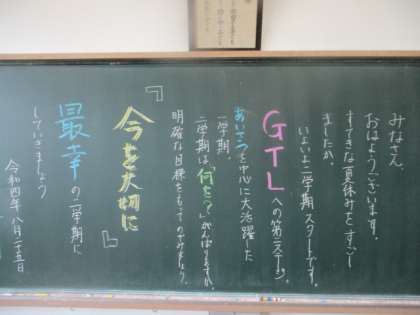 みなさん、
おはようございます。
すてきな夏休みをすごし
ましたか。
いよいよ二学期スタートです。
GTLへの第二ステージ。
あいさつを中心に大活躍した
一学期。
二学期は、「何を？」がんばりますか。
明確な目標をもってのぞみましょう。
『今を大切に』
最幸の二学期に
していきましょう
令和四年八月二十五日